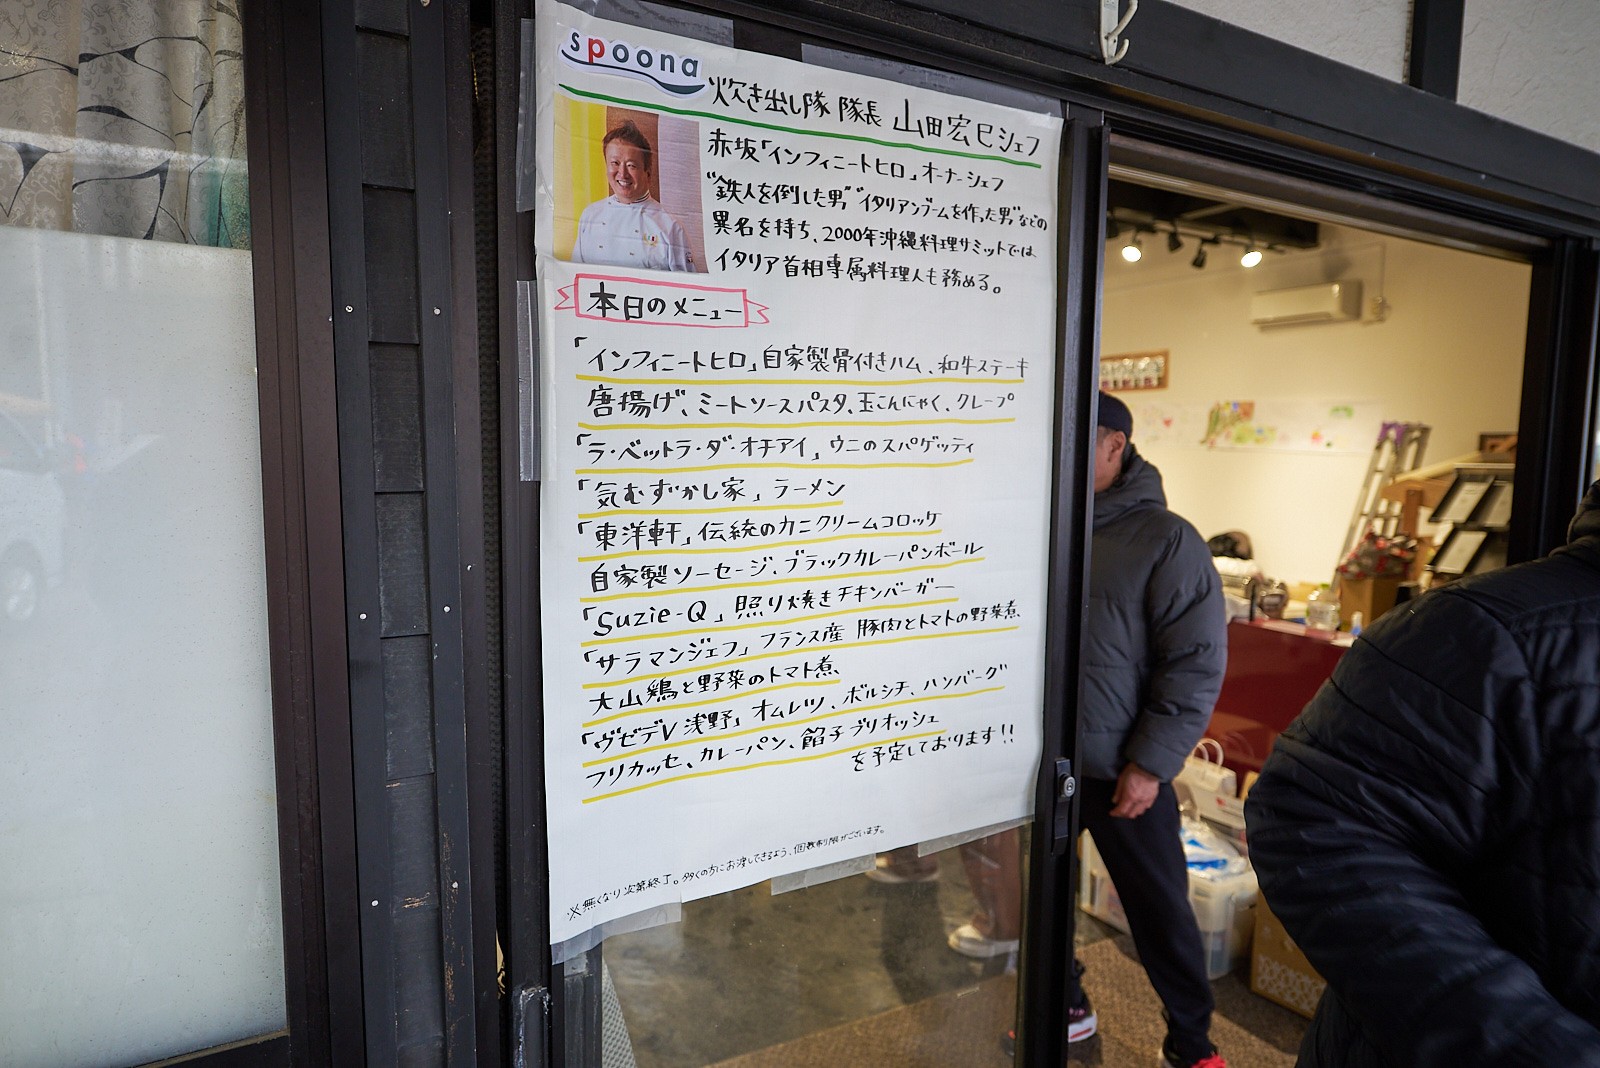 spoona
炊き出し隊 隊長 山田宏巳シェフ
赤坂「インフィニートヒロ」オーナーシェフ
"鉄人を倒した男" "イタリアンブームを作った男"などの
異名を持ち、2000年沖縄料理サミットでは、
イタリア首相専属料理人も務める。
本日のメニュー
「インフィニートヒロ」自家製骨付きハム、和牛ステーキ
唐揚げ、ミートソースパスタ、玉こんにゃく、クレープ
「ラ・ベットラ・ダ・オチアイ」ウニのスパゲッティ
「気むずかし家」ラーメン
「東洋軒」伝統のカニクリームコロッケ
自家製ソーセージ、ブラックカレーパンボール
「Suzie-Q」照り焼きチキンバーガー
「サラマンジェフ」フランス産 豚肉とトマトの野菜煮、
大山鶏と野菜のトマト煮、
「ヴゼデV浅野」オムレツ、ボルシチ、ハンバーグ
フリカッセ、カレーパン、餡子ブリオッシュ
を予定しております!!
※無くなり次第終了。多くの方にお渡しできるよう、個数制限がございます。